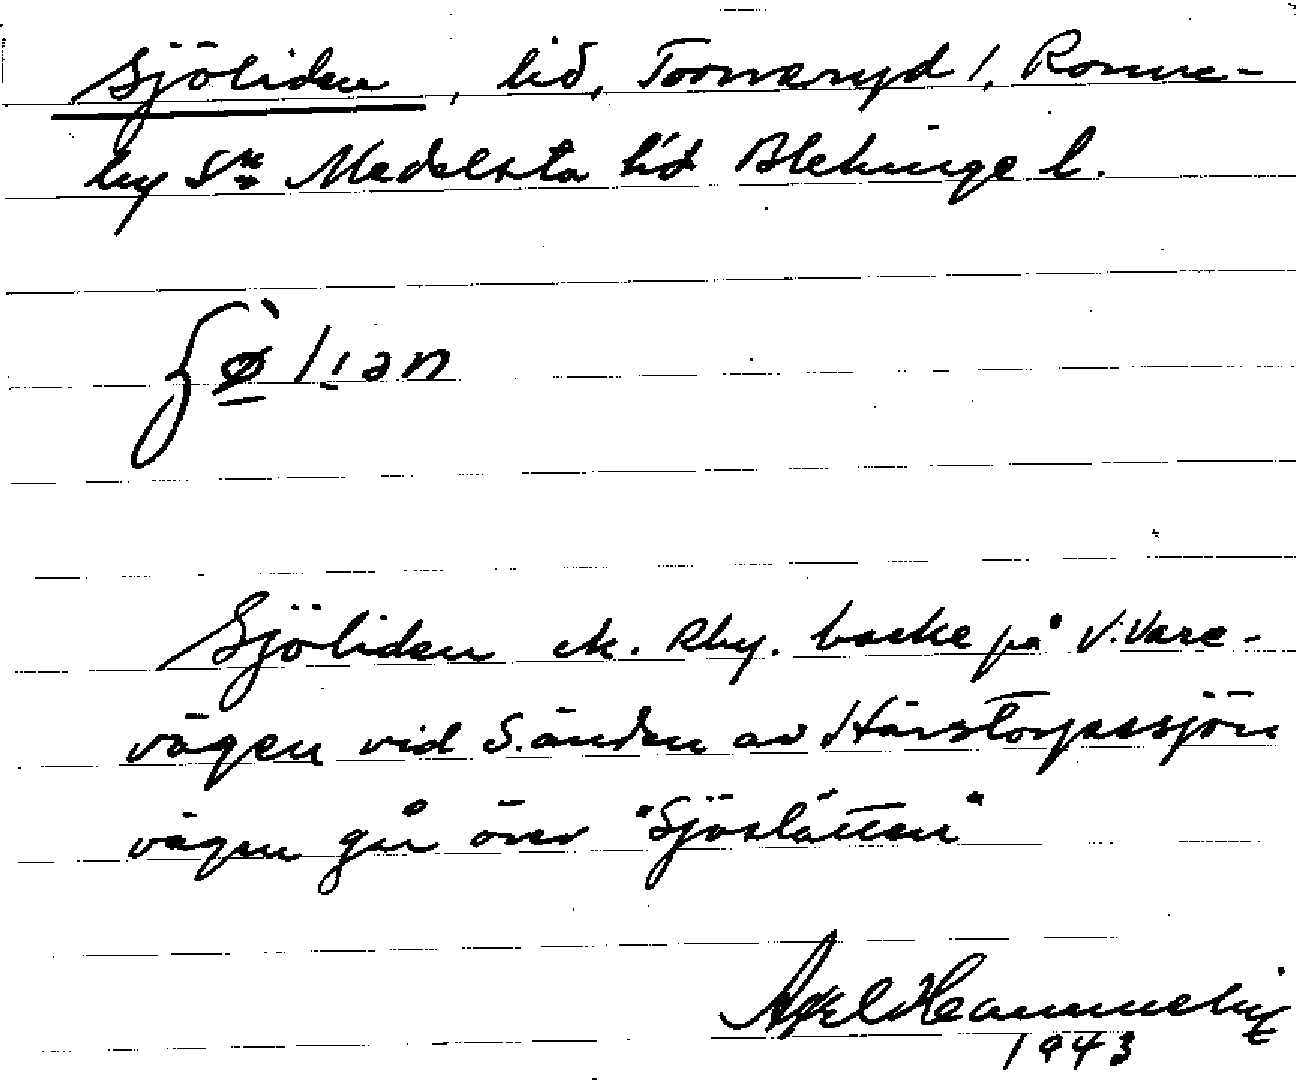 Sjöliden, lid, Torneryd 1, Ronne-
by sn Medelsta hd Blekinge l.
Sjöliden ek. Rby. backe på V. Vare-
vägen vid S. änden av Härstorpssjön
vägen går över "Sjöslätten"
Axel
1943